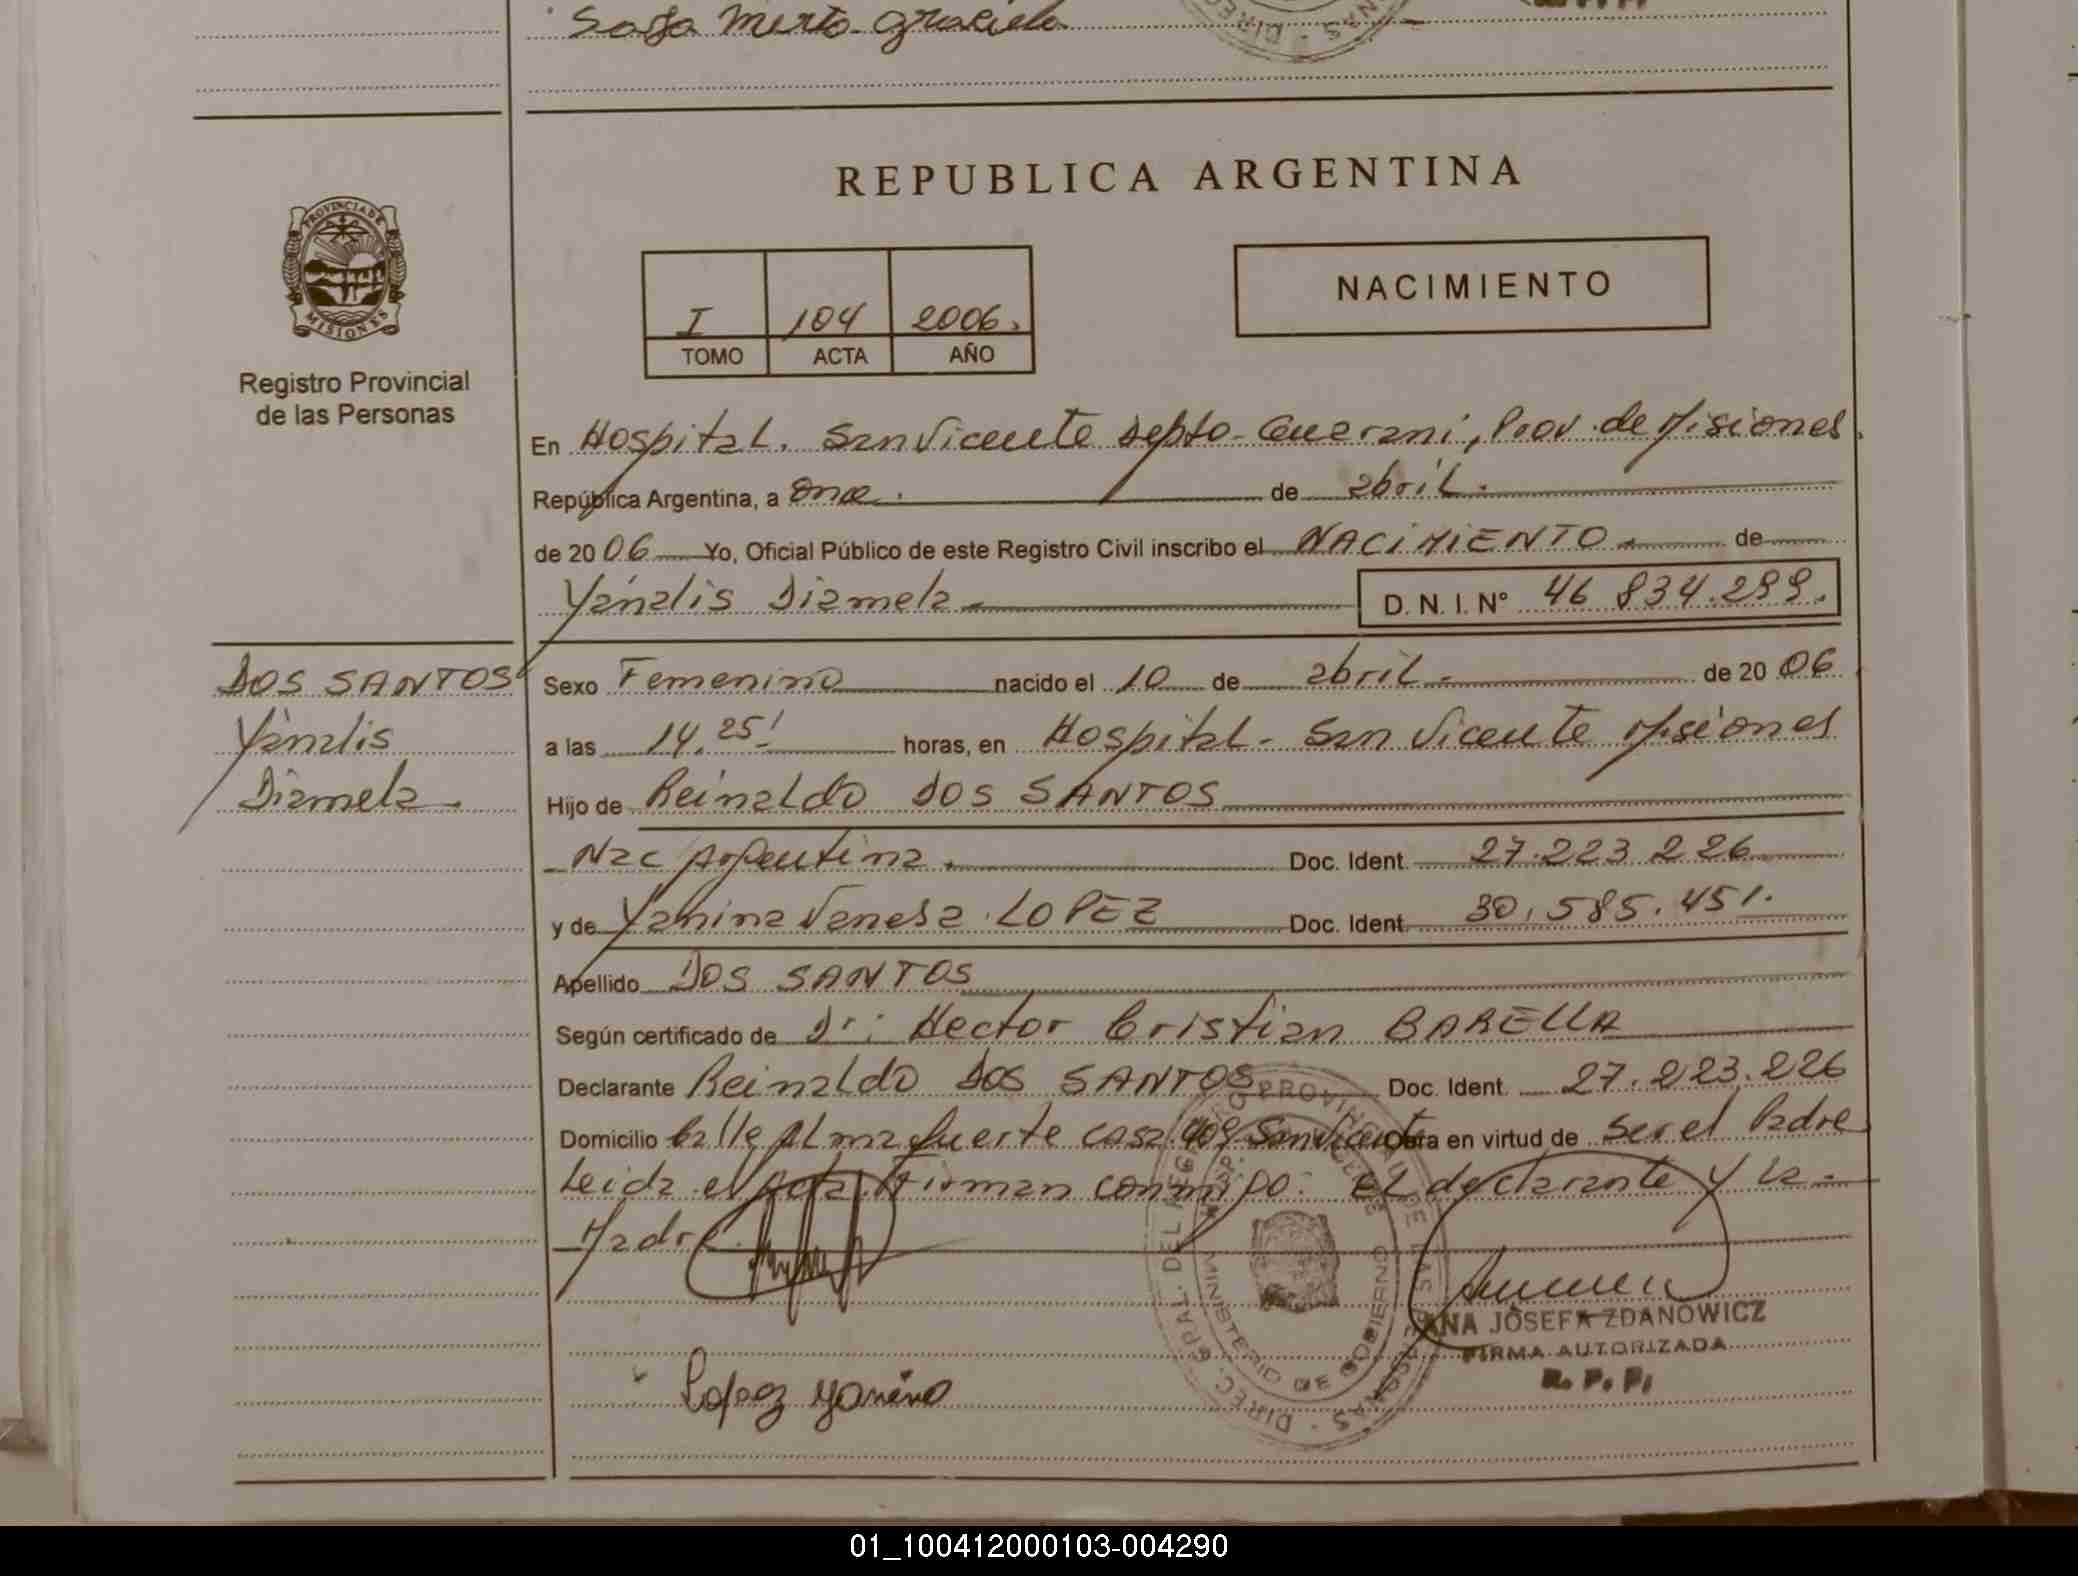 Sosa Mirta Graciela
REPUBLICA ARGENTINA
PROVINCIA DE
MISIONES
Registro Provincial
de las Personas
I 104 2006.
TOMO ACTA AÑO
NACIMIENTO
En Hospital. San Vicente Depto- Guarani, Prov. de Misiones.
República Argentina, a once. de abril.
de 2006 Yo, Oficial Público de este Registro Civil inscribo el NACIMIENTO de
Yanalis Diamela
D. N. I. Nº 46 834.299.
DOS SANTOS
Yanalis
Diamela.
Sexo Femenino nacido el 10 de abril de 2006
a las 14.25' horas, en Hospital- San Vicente Misiones
Hijo de Reinaldo DOS SANTOS
Nac Argentina. Doc. Ident. 27.223 226
y de Yanina Vanesa LOPEZ Doc. Ident. 30.585.451.
Apellido DOS SANTOS
Según certificado de Dr: Hector Cristian BARELLA
Declarante Reinaldo DOS SANTOS Doc. Ident. 27.223.226
Domicilio Calle Almafuerte casa 409 San Vicente Obra en virtud de ser el Padre
Leida el acta. Firman conmigo: El declarante y la
Madre.
Lopez Yanina
ANA JOSEFA ZDANOWICZ
FIRMA AUTORIZADA
R. P. P.
MINISTERIO DE GOBIERNO
01_100412000103-004290